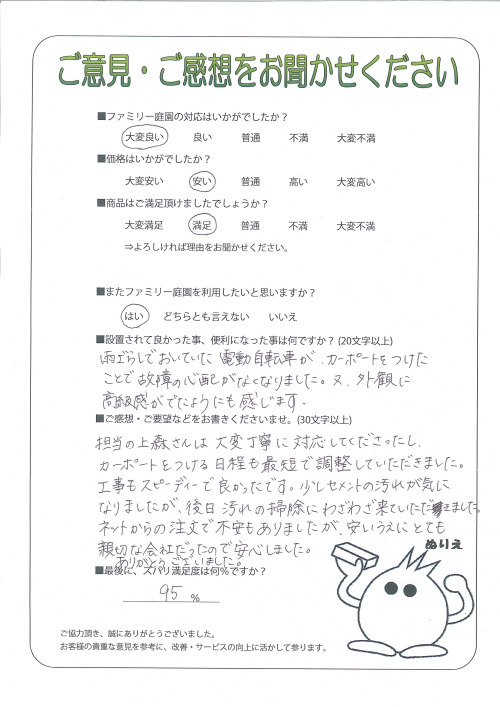 ご意見・ご感想をお聞かせください
■ファミリー庭園の対応はいかがでしたか？
大変良い 良い 普通 不満 大変不満
■価格はいかがでしたか？
大変安い 安い 普通 高い 大変高い
■商品はご満足頂けましたでしょうか？
大変満足 満足 普通 不満 大変不満
⇒よろしければ理由をお聞かせください。
■またファミリー庭園を利用したいと思いますか？
はい どちらとも言えない いいえ
■設置されて良かった事、便利になった事は何ですか？(20文字以上)
雨ざらしでおいていた電動自転車が、カーポートをつけた
ことで故障の心配がなくなりました。又、外観に
高級感がでたようにも感じます。
■ご感想・ご要望などをお書きくださいませ。(30文字以上)
担当の上森さんは大変丁寧に対応してくださったし、
カーポートをつける日程も最短で調整していただきました。
工事もスピーディーで良かったです。少しセメントの汚れが気に
なりましたが、後日汚れの掃除にわざわざ来ていただきました。
ネットからの注文で不安もありましたが、安いうえにとても
親切な会社だったので安心しました。
ありがとうございました。
■最後に、ズバリ満足度は何％ですか？
95 %
ぬりえ
ご協力頂き、誠にありがとうございました。
お客様の貴重な意見を参考に、改善・サービスの向上に活かして参ります。